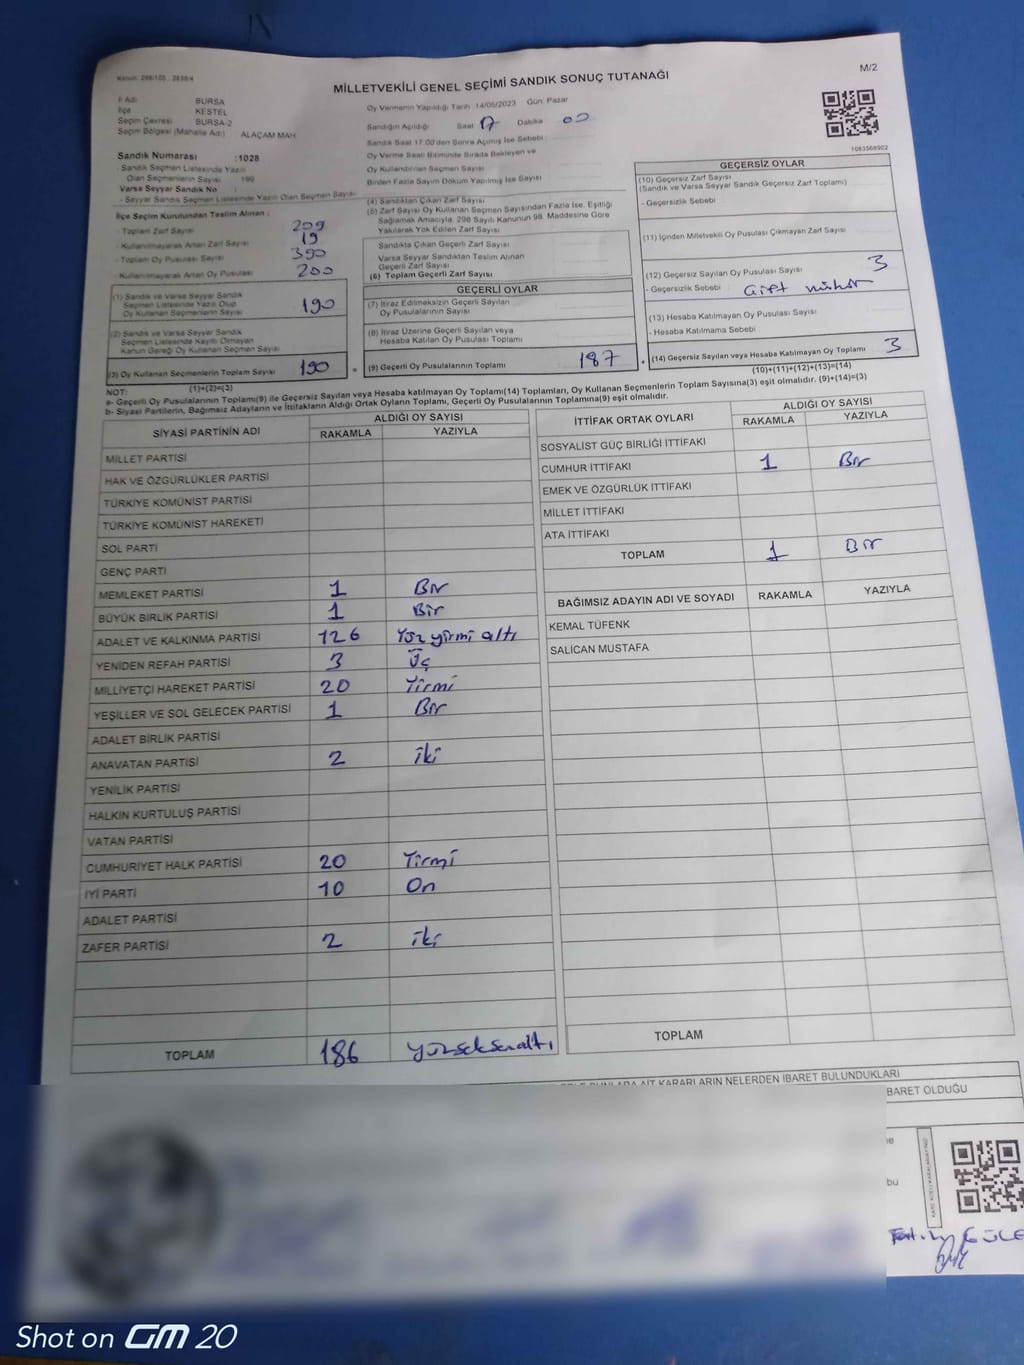 M/2
MİLLETVEKİLİ GENEL SEÇİMİ SANDIK SONUÇ TUTANAĞI
İl Adı BURSA
İlçe KESTEL
Seçim Çevresi BURSA-2
Seçim Bölgesi (Mahalle Adı) ALAÇAM MAH
Oy Vermenin Yapıldığı Tarih :14/05/2023 Gün: Pazar
Sandığın Açıldığı Saat 17 Dakika 00
Sandık Saat 17.00'den Sonra Açılmış İse Sebebi
Oy Verme Saati Bitiminde Sırada Bekleyen ve
Oy Kullandırılan Seçmen Sayısı
Birden Fazla Sayım Döküm Yapılmış İse Sayısı
Sandık Numarası :1028
- Sandık Seçmen Listesinde Yazılı
Olan Seçmenlerin Sayısı 199
Varsa Seyyar Sandık No
- Seyyar Sandık Seçmen Listesinde Yazılı Olan Seçmen Sayısı
İlçe Seçim Kurulundan Teslim Alınan :
- Toplam Zarf Sayısı 209
- Kullanılmayarak Artan Zarf Sayısı 19
- Toplam Oy Pusulası Sayısı 390
- Kullanılmayarak Artan Oy Pusulası 200
(1) Sandık ve Varsa Seyyar Sandık
Seçmen Listesinde Yazılı Olup
Oy Kullanan Seçmenlerin Sayısı 190
(2) Sandık ve Varsa Seyyar Sandık
Seçmen Listesinde Kayıtlı Olmayan
Kanun Gereği Oy Kullanan Seçmen Sayısı
(3) Oy Kullanan Seçmenlerin Toplam Sayısı 190
(4) Sandıktan Çıkan Zarf Sayısı
(5) Zarf Sayısı Oy Kullanan Seçmen Sayısından Fazla İse, Eşitliği
Sağlamak Amacıyla, 298 Sayılı Kanunun 98. Maddesine Göre
Yakılarak Yok Edilen Zarf Sayısı
Sandıkta Çıkan Geçerli Zarf Sayısı
Varsa Seyyar Sandıktan Teslim Alınan
Geçerli Zarf Sayısı
(6) Toplam Geçerli Zarf Sayısı
GEÇERLİ OYLAR
(7) İtiraz Edilmeksizin Geçerli Sayılan
Oy Pusulalarının Sayısı
(8) İtiraz Üzerine Geçerli Sayılan veya
Hesaba Katılan Oy Pusulası Toplamı
(9) Geçerli Oy Pusulalarının Toplamı 187
GEÇERSİZ OYLAR
(10) Geçersiz Zarf Sayısı
(Sandık ve Varsa Seyyar Sandık Geçersiz Zarf Toplamı)
- Geçersizlik Sebebi
(11) İçinden Milletvekili Oy Pusulası Çıkmayan Zarf Sayısı
(12) Geçersiz Sayılan Oy Pusulası Sayısı 3
- Geçersizlik Sebebi Çift mühür
(13) Hesaba Katılmayan Oy Pusulası Sayısı
- Hesaba Katılmama Sebebi
(14) Geçersiz Sayılan veya Hesaba Katılmayan Oy Toplamı 3
(10)+(11)+(12)+(13)=(14)
NOT: (1)+(2)=(3)
a- Geçerli Oy Pusulalarının Toplamı(9) ile Geçersiz Sayılan veya Hesaba katılmayan Oy Toplamı(14) Toplamları, Oy Kullanan Seçmenlerin Toplam Sayısına(3) eşit olmalıdır. (9)+(14)=(3)
b- Siyasi Partilerin, Bağımsız Adayların ve İttifakların Aldığı Ortak Oyların Toplamı, Geçerli Oy Pusulalarının Toplamına(9) eşit olmalıdır.
SİYASİ PARTİNİN ADI ALDIĞI OY SAYISI
RAKAMLA YAZIYLA
MİLLET PARTİSİ
HAK VE ÖZGÜRLÜKLER PARTİSİ
TÜRKİYE KOMÜNİST PARTİSİ
TÜRKİYE KOMÜNİST HAREKETİ
SOL PARTİ
GENÇ PARTİ
MEMLEKET PARTİSİ 1 Bir
BÜYÜK BİRLİK PARTİSİ 1 Bir
ADALET VE KALKINMA PARTİSİ 126 Yüz yirmi altı
YENİDEN REFAH PARTİSİ 3 Üç
MİLLİYETÇİ HAREKET PARTİSİ 20 Yirmi
YEŞİLLER VE SOL GELECEK PARTİSİ 1 Bir
ADALET BİRLİK PARTİSİ
ANAVATAN PARTİSİ 2 iki
YENİLİK PARTİSİ
HALKIN KURTULUŞ PARTİSİ
VATAN PARTİSİ
CUMHURİYET HALK PARTİSİ 20 Yirmi
İYİ PARTİ 10 On
ADALET PARTİSİ
ZAFER PARTİSİ 2 iki
TOPLAM 186 yüzseksenaltı
İTTİFAK ORTAK OYLARI ALDIĞI OY SAYISI
RAKAMLA YAZIYLA
SOSYALİST GÜÇ BİRLİĞİ İTTİFAKI
CUMHUR İTTİFAKI 1 Bir
EMEK VE ÖZGÜRLÜK İTTİFAKI
MİLLET İTTİFAKI
ATA İTTİFAKI
TOPLAM 1 Bir
BAĞIMSIZ ADAYIN ADI VE SOYADI RAKAMLA YAZIYLA
KEMAL TÜFENK
SALİCAN MUSTAFA
TOPLAM
KARARLARIN NELERDEN İBARET BULUNDUKLARI
İBARET OLDUĞU
Shot on GM 20